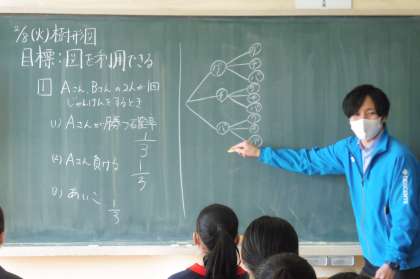 2/8(火)樹形図
目標:図を利用できる
1 Aさん、Bさんの2人が1回
じゃんけんをするとき
(1) Aさんが勝つ確率
1/3
(2) Aさん負ける
1/3
(3) あいこ
1/3
グ
チ
パ